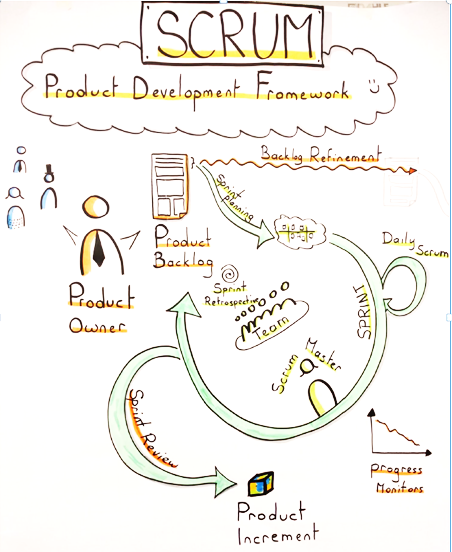 SCRUM
Product Development Framework
Backlog Refinement
Sprint
Planning
Product
Backlog
Daily
Scrum
Product
Owner
Sprint
Retrospective
Team
SPRINT
Scrum Master
Sprint Review
Progress
Monitors
Product
Increment